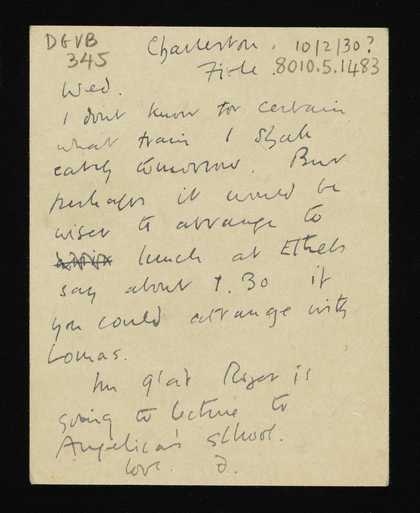 DGVB
345
Charleston. 10/2/30?
Firle. 8010.5.1483
Wed.
I dont know for certain
what train I shall
catch tomorrow. But
perhaps it would be
wiser to arrange to
lunch at Ethels
say about 1.30 if
you could arrange with
Lomas.
Im glad Roger is
going to lecture to
Angelica's school.
love. D.